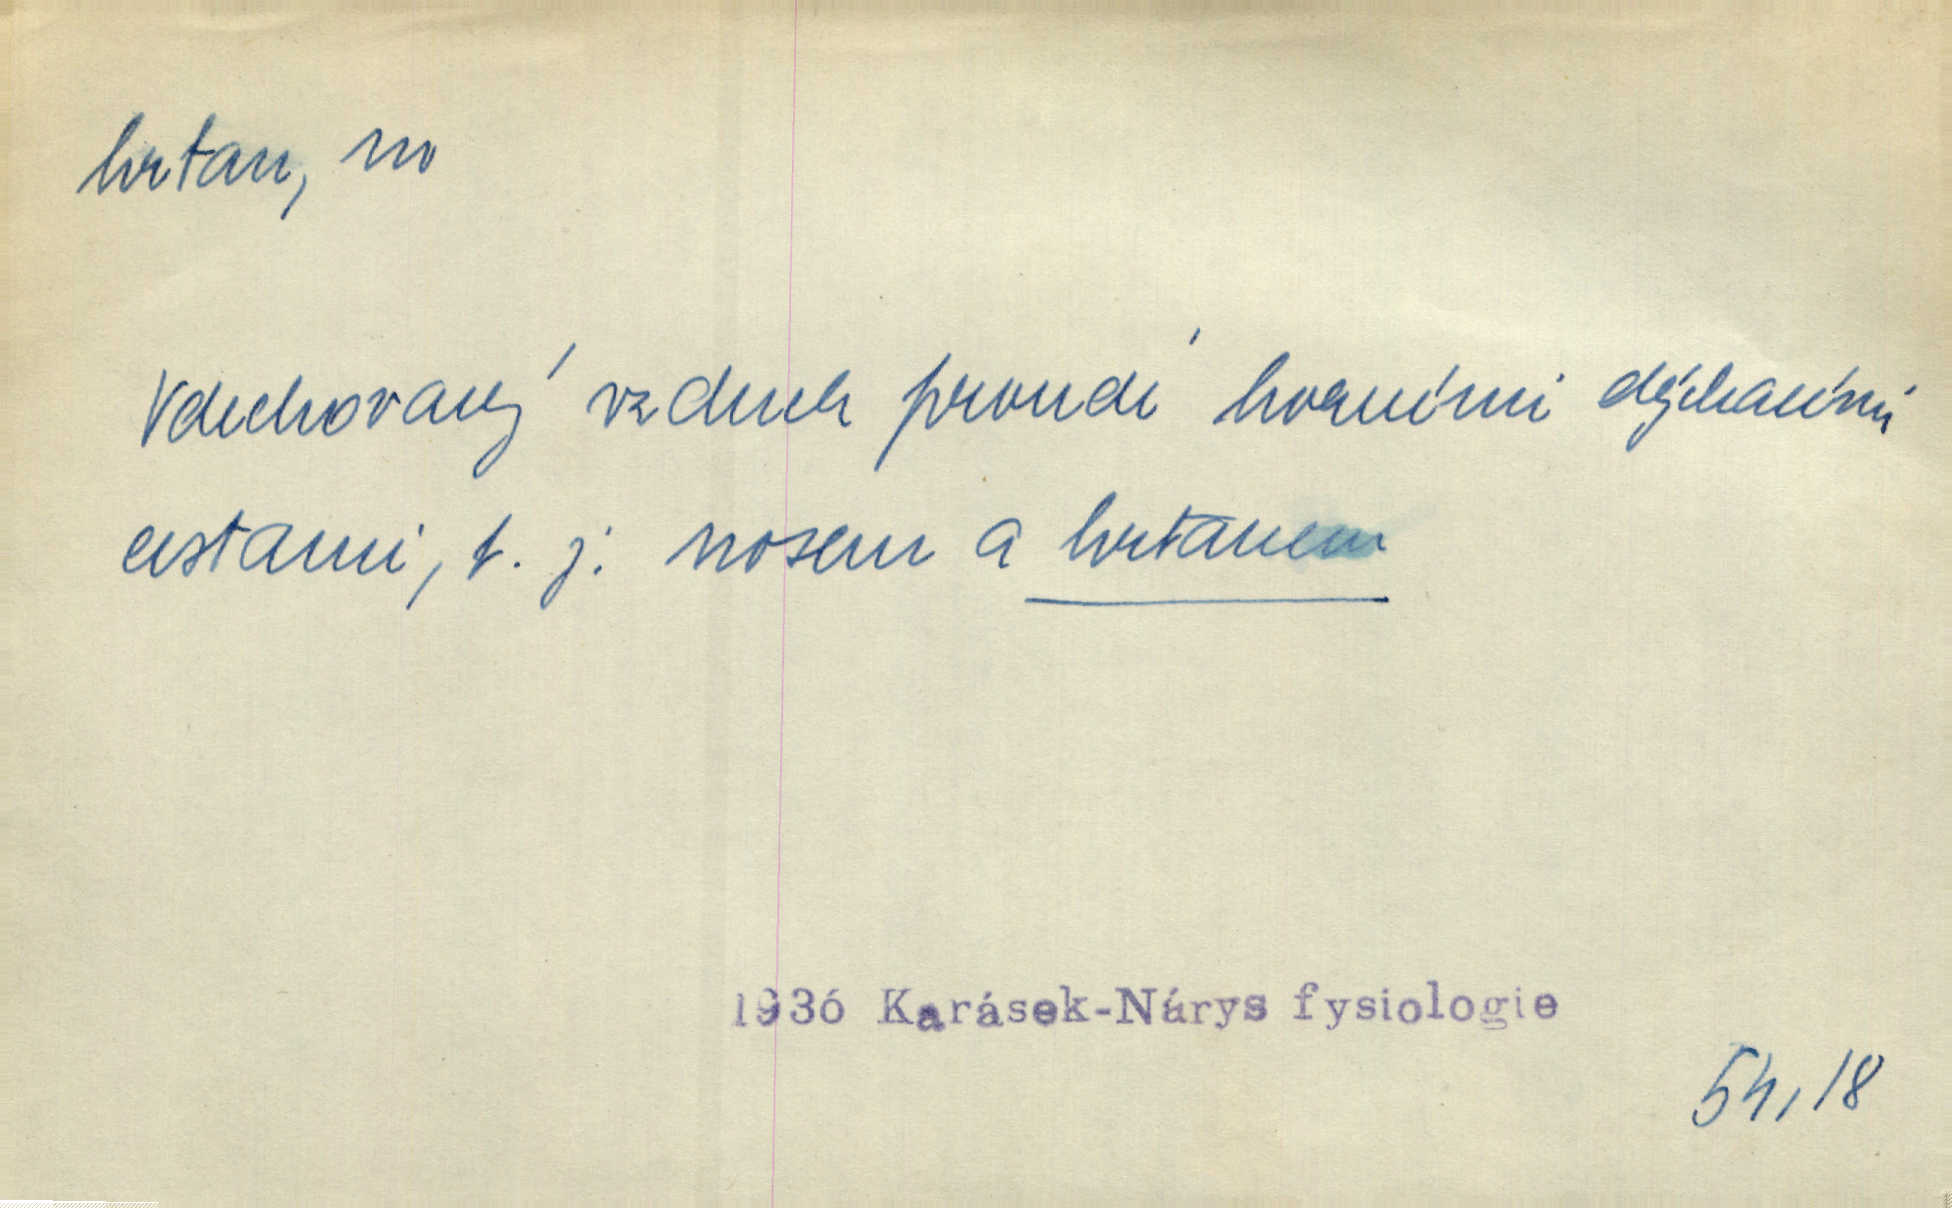 hrtan, m
Vdechovaný vzduch proudí horními dýchacími
cestami, t. j. nosem a hrtanem
1936 Karásek-Nárys fysiologie
54,18